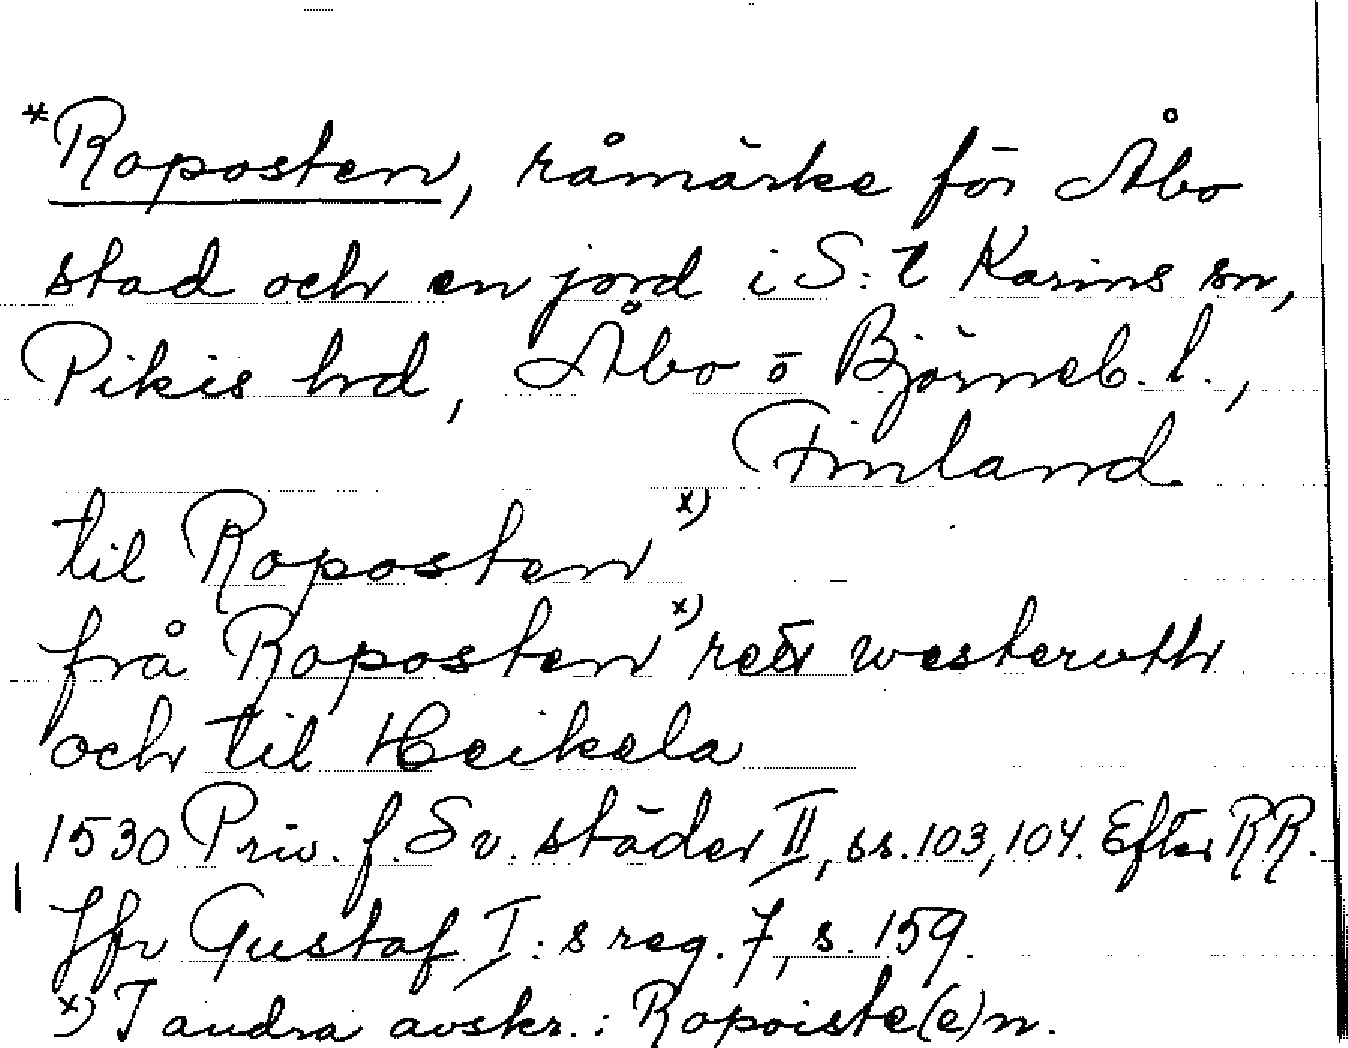 *Roposten, råmärke för Åbo
stad och en jord i S:t Karins sn,
Pikis hd, Åbo o Björneb. l.,
Finland
til Roposten x)
frå Roposten x) rett westeruth
och til Heikela
1530 Priv. f. Sv. städer II, ss. 103, 104. Efter RR.
Jfr Gustaf I:s reg. 7, s. 159.
x) I andra avskr.: Ropoiste(e)n.